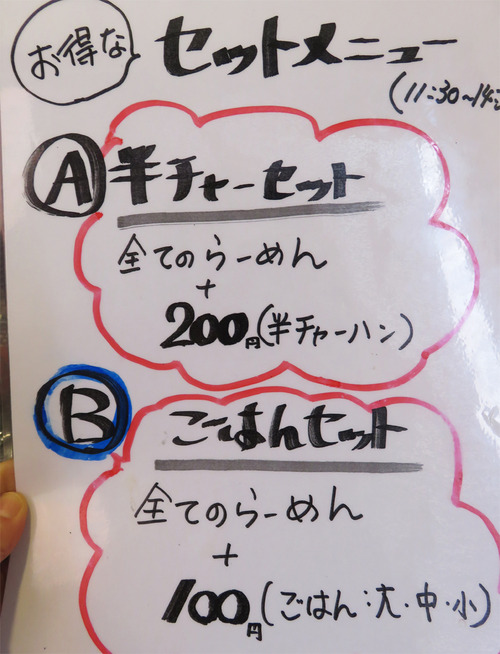 お得な セットメニュー
(11:30~14:
A 半チャーセット
全てのらーめん
+
200円(半チャーハン)
B ごはんセット
全てのらーめん
+
100円(ごはん:大・中・小)